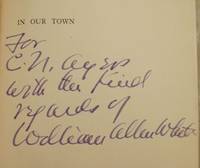 IN OUR TOWN
For
C. N. Ayers
with the kind
regards of
William Allen White